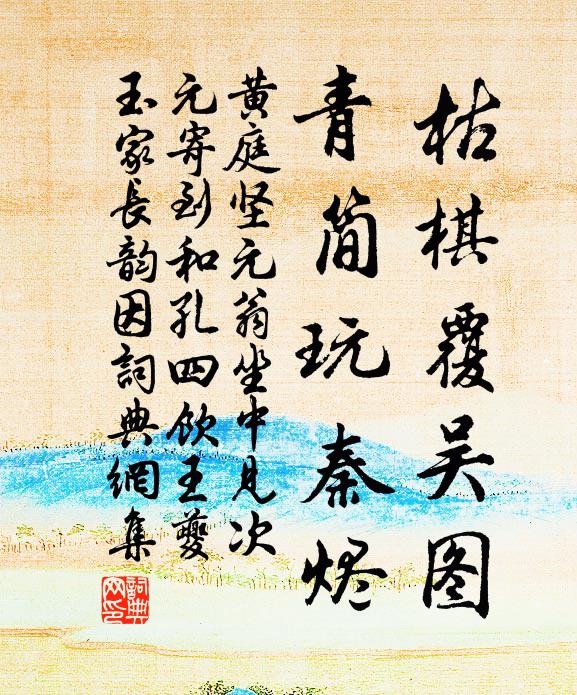 枯棋覆吴图
青简玩秦烬
黄庭坚元翁坐中见次
元寄到和孔四饮王夔
玉家长韵因詞典網集
詞典